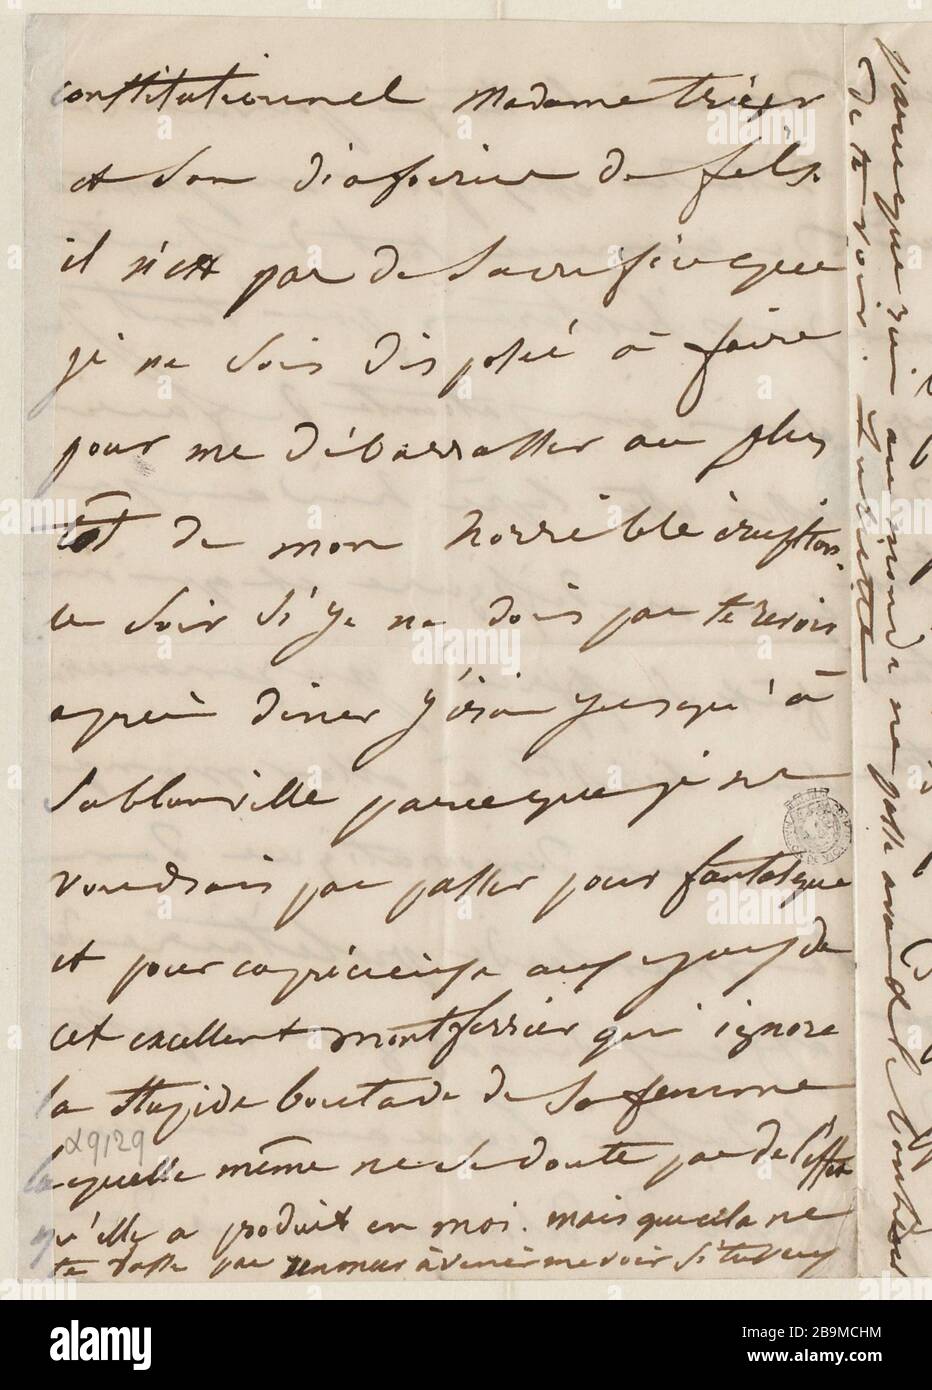 constitutionnel Madame triger
et son diafoirus de fils.
il n'est pas de sacrifice que
je ne sois disposée à faire
pour me débarrasser au plus
tôt de mon horrible éruption.
ce soir si je ne dois pas te revoir
après diner j'irai jusqu'à
Sablonville parceque je ne
voudrais pas passer pour fantasque
et pour capricieuse aux yeux de
cet excellent montferrier qui ignore
la stupide boutade de sa femme
laquelle même ne se doute pas de l'effet
qu'elle a produit en moi. mais que cela ne
te fasse pas renoncer à venir me voir si tu veux
parceque rien au monde ne passe avant le bonheur
de te voir. Juliette
29129
alamy
Image ID: 2B9MCHM
www.alamy.com